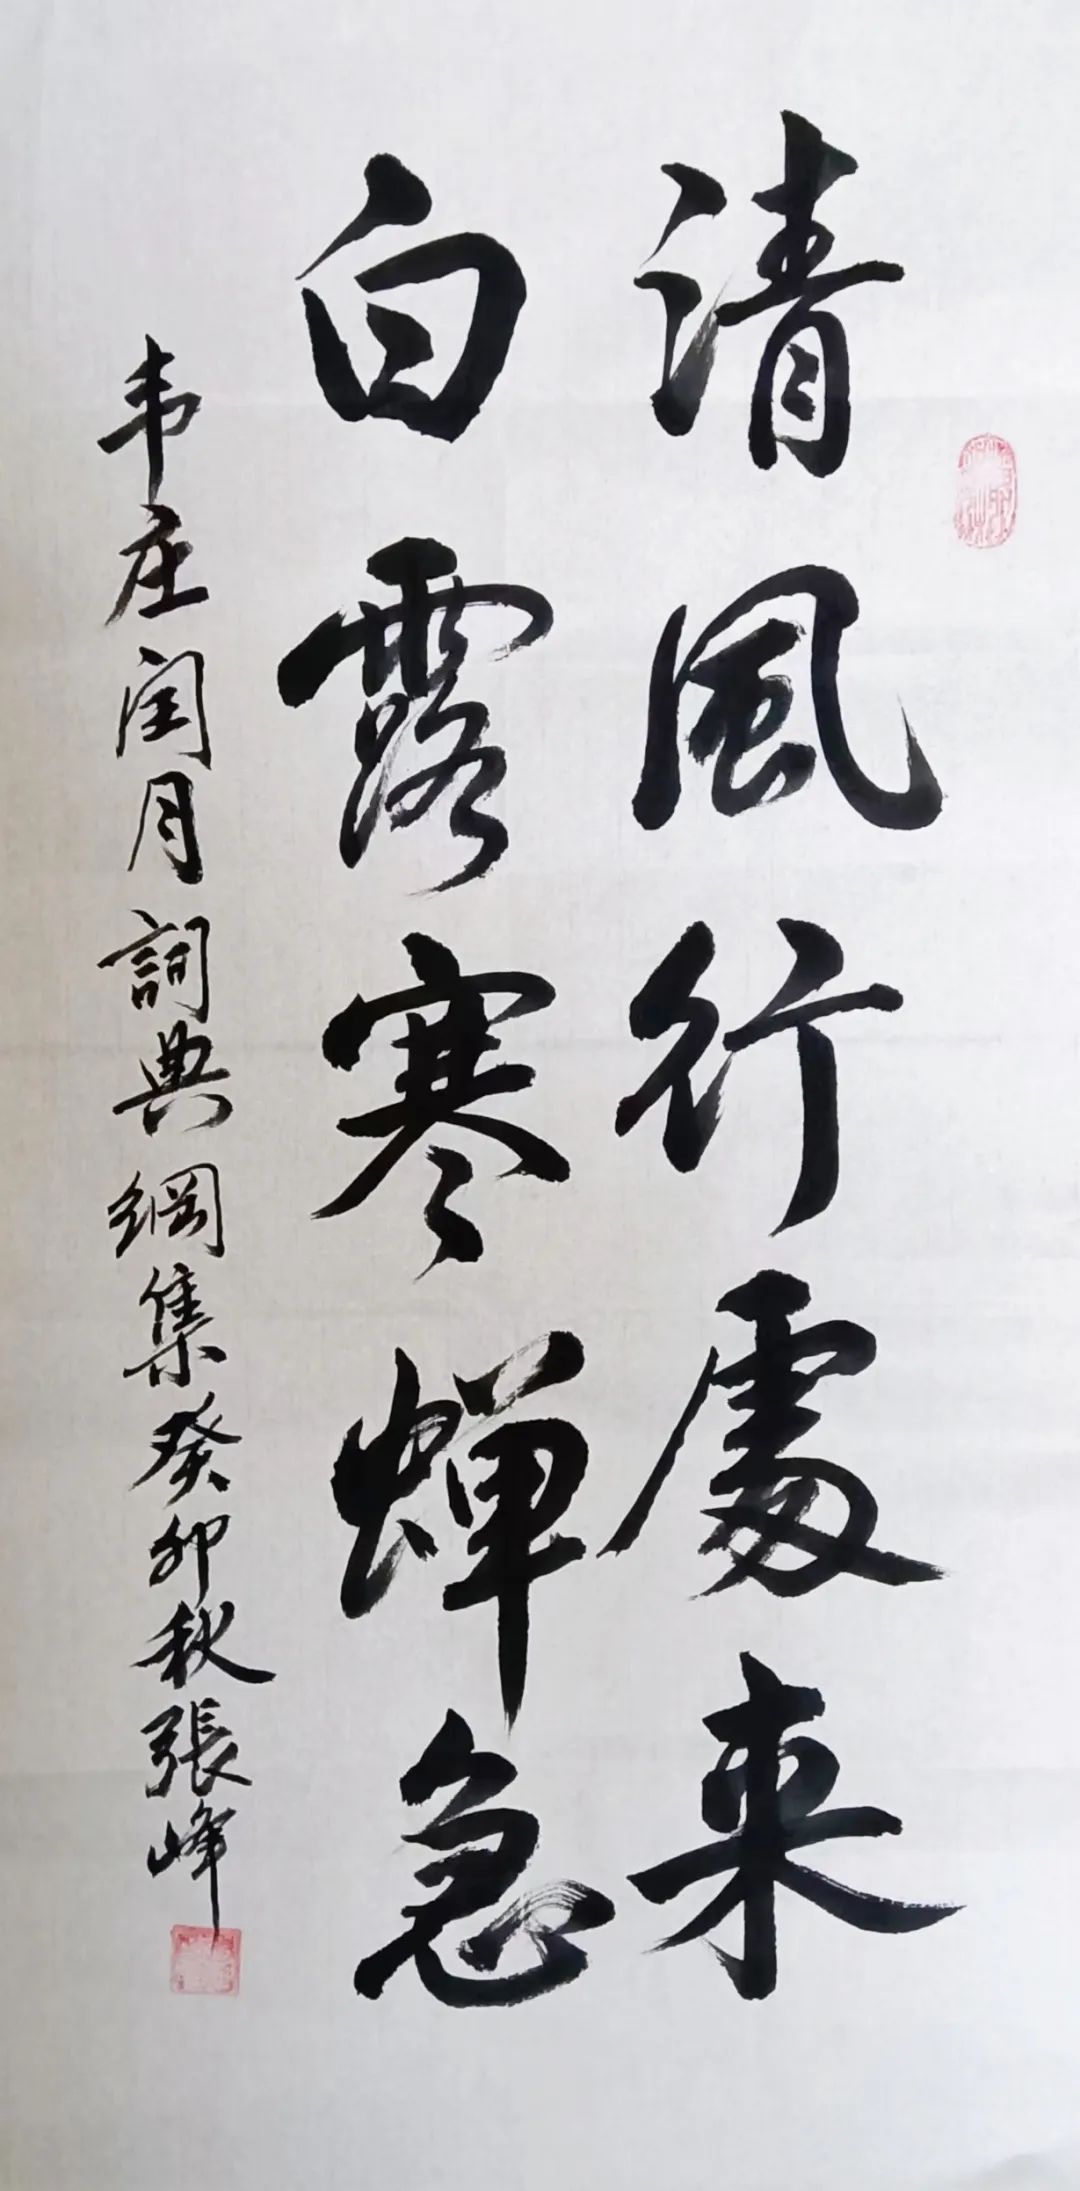 清風行處来
白露寒蝉急
韦庄闰月詞典綱集癸卯秋張峰